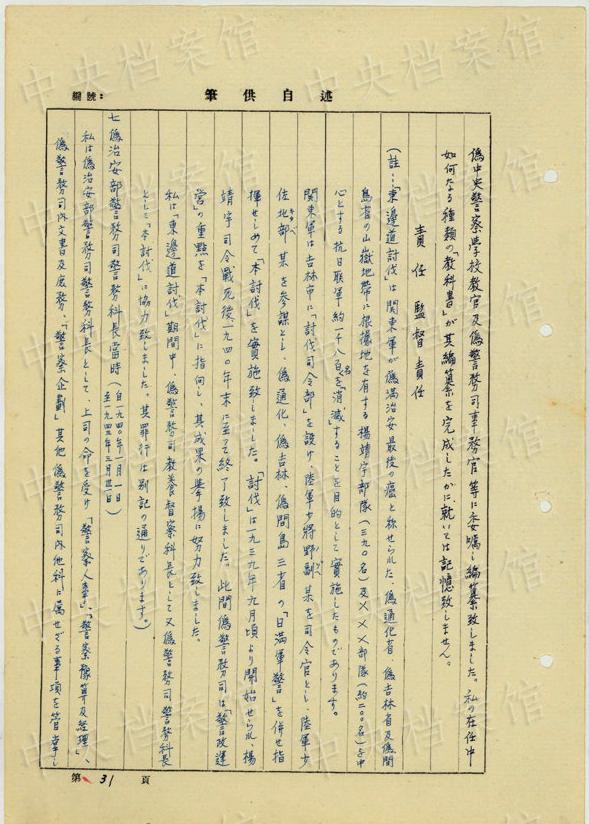 中央档案馆
編號：
筆供自述
偽中央警察学校教官及偽警務司事務官等に委嘱し編纂致しました。私の在任中
如何なる種類の「教科書」が其編纂を完成したかに就いては記憶致しません。
責任 監督責任
(註：「東邊道討伐」は関東軍が偽満治安最後の癌と称せられた、偽通化省、偽吉林省及偽間
島省の山嶽地帯に根拠地を有する楊靖宇部隊(三九〇名)及×××部隊(約二〇〇名)を中
心とする抗日联軍約一千八百名を「消滅」することを目的として実施したものであります。
関東軍は吉林市に「討伐司令部」を設け、陸軍少将野副某を司令官とし、陸軍少
佐北部某を参謀とし、偽通化、偽吉林、偽間島三省の「日満軍警」を併せ指
揮せしめて「本討伐」を実施致しました。「討伐」は一九三九年九月頃より開始せられ、楊
靖宇司令戰死後一九四一年末に至って終了致しました。此間偽警務司は「警政運
営」の重點を「本討伐」に指向し、其成果の挙揚に努力致しました。
私は「東邊道討伐」期間中、偽警務司教養督察科長として又偽警務司警務科長
として「本討伐」に協力致しました。其罪行は別記の通りであります。)
七 偽治安部警務司警務科長當時(自一九四〇年一月一日
至一九四三年三月卅一日)
私は偽治安部警務司警務科長として、上司の命を受け「警察人事」、「警察豫算及経理」、
偽警務司内文書及庶務、「警察企劃」其他偽警務司内他科に属せざる事項を管掌し
第 31 頁